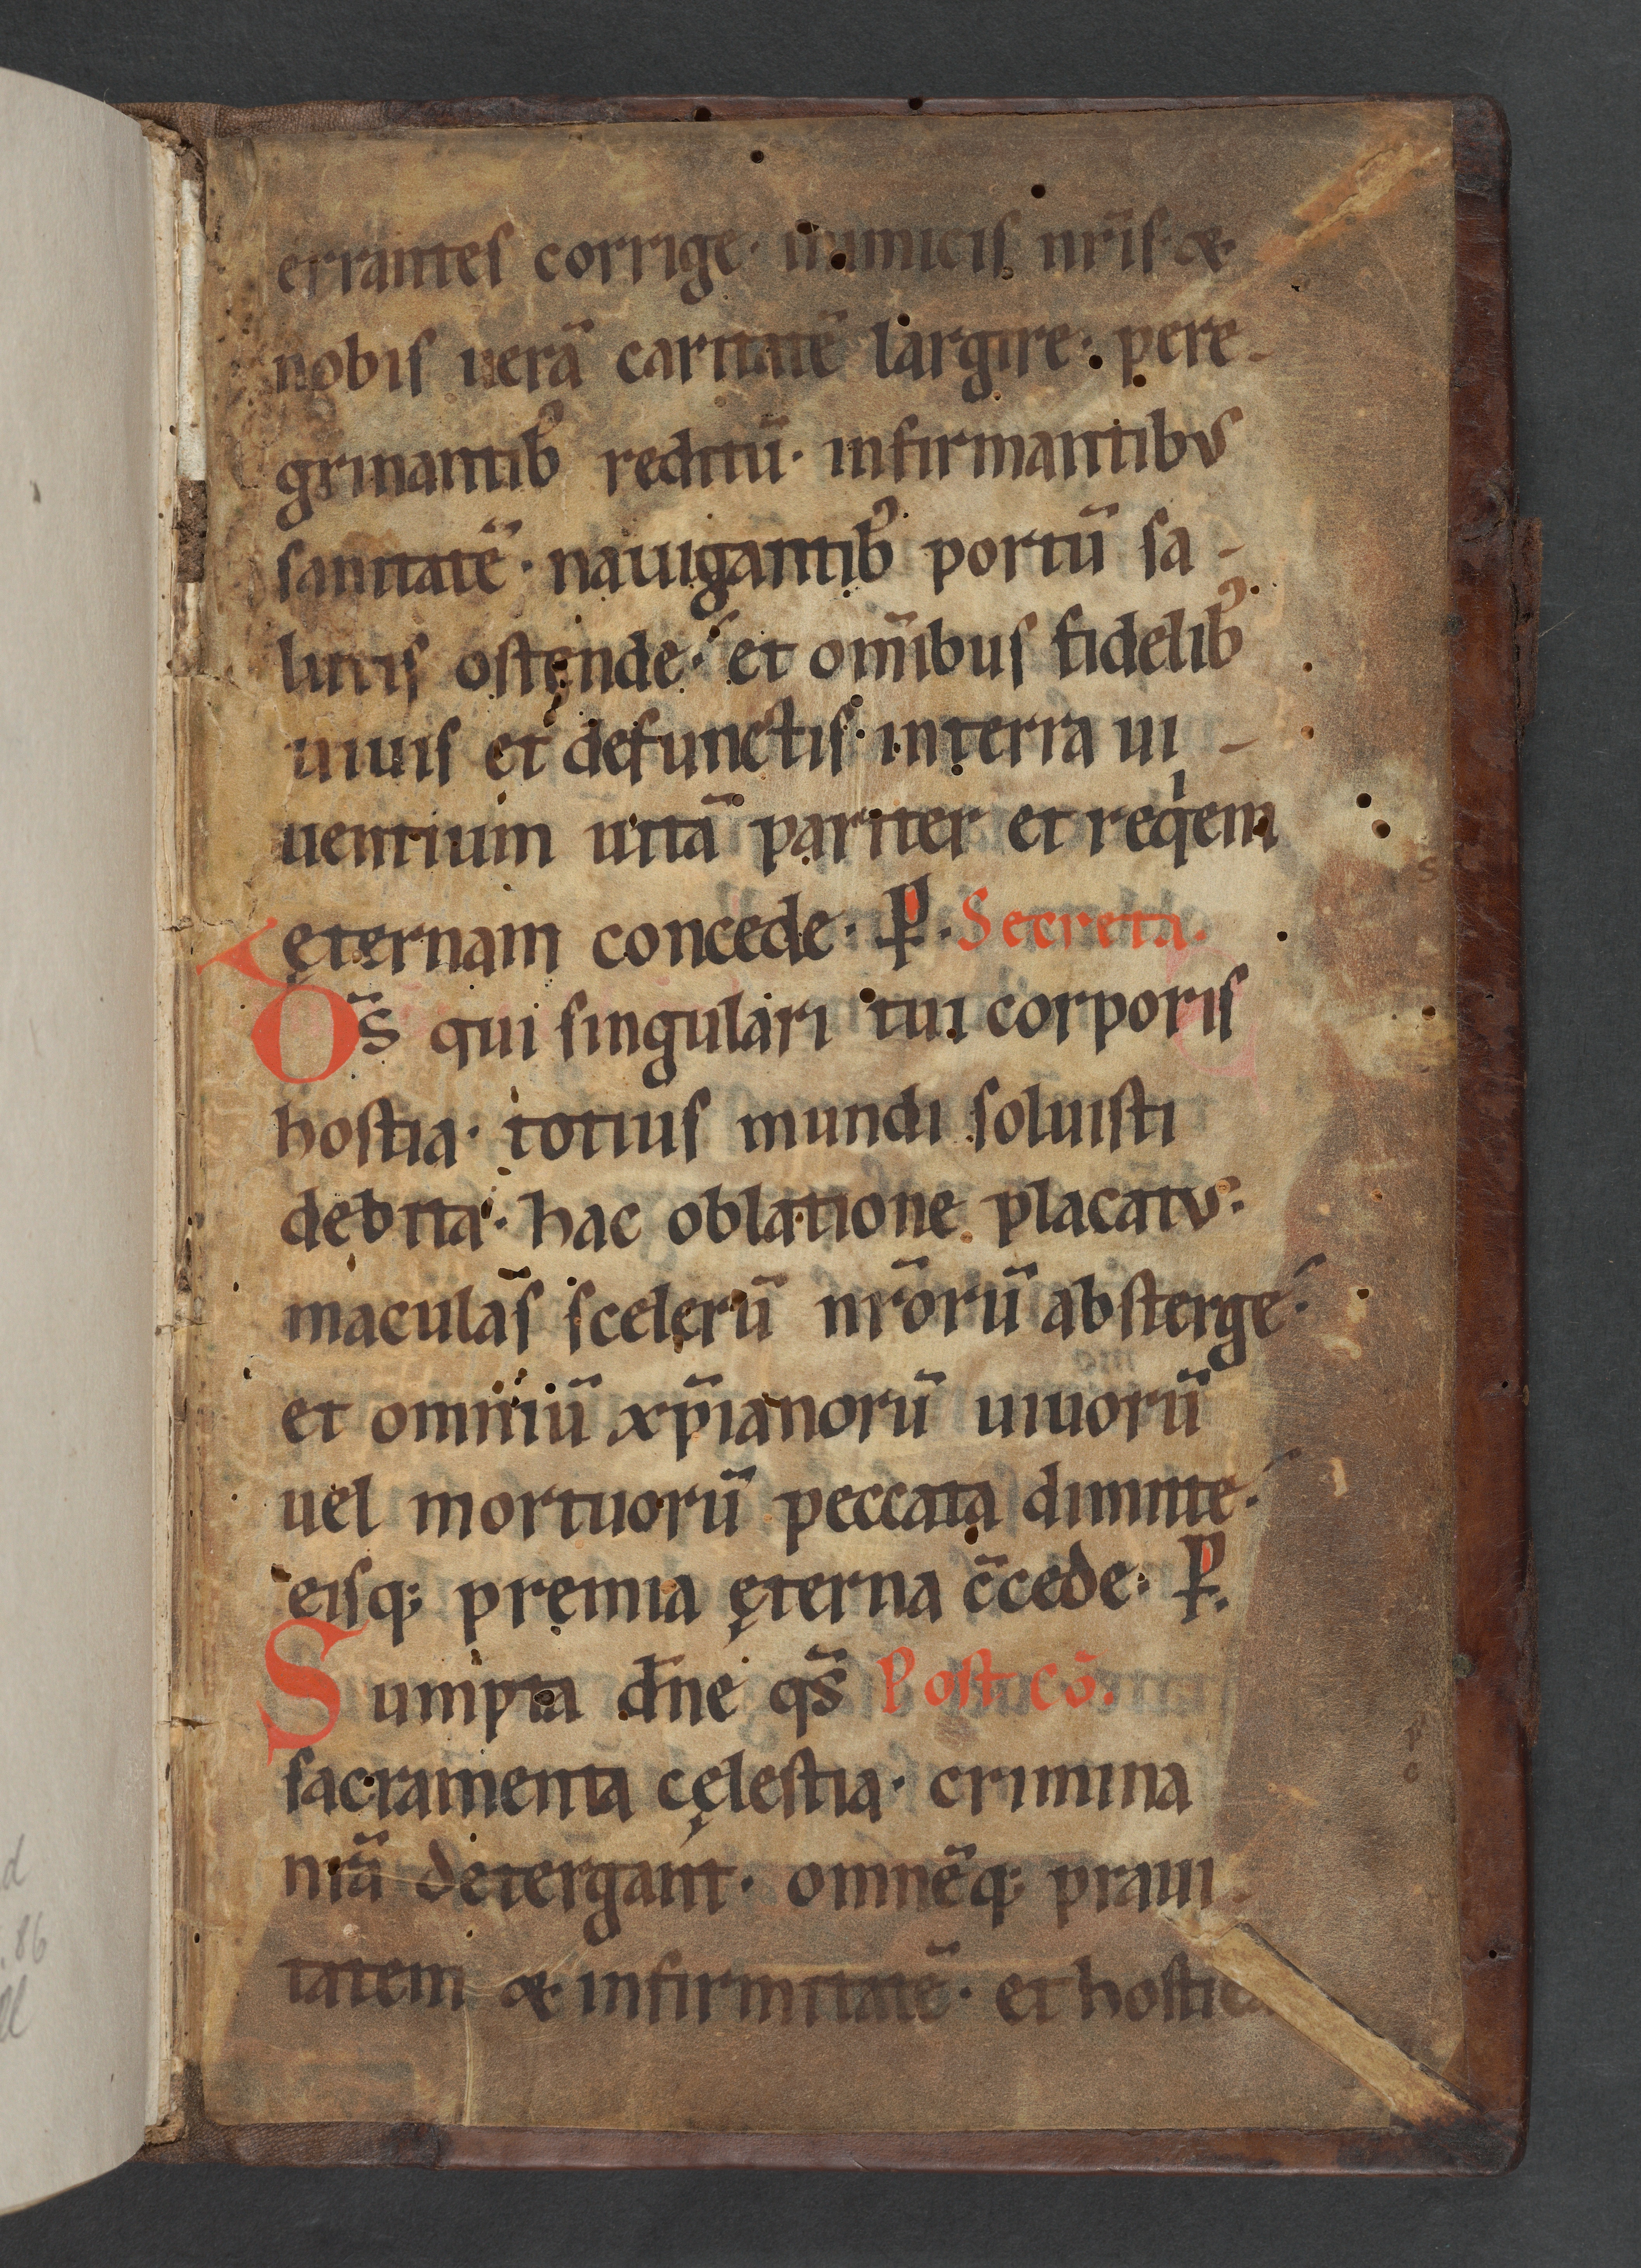 errantes corrige· inimicis nr̄is· &
nobis uerā caritatē largire· pere-
grinantib᷒ reditū· infirmantibus
sanitatē· nauigantib᷒ portū sa-
lutis ostende· et om̄ibus fidelib᷒
uiuis et defunctis· in terra ui-
uentium uitā pariter et reqͥem
ęternam concede· P̲· Secreta.
D̄s qui singulari tui corporis
hostia· totius mundi soluisti
debita· hac oblatione placatus·
maculas̄ scelerū nr̄orū absterge·
et omniū xp̄ianorū uiuorū
uel mortuorū peccata dimitte·
eisq; premia ęterna c̄cede· P̲.
Sumpta dn̄e qs̄ Post cō.
sacramenta cęlestia· crimina
nr̄a detergant· omnēq; praui-
tatem & infirmitatē· et hostica
d
.86